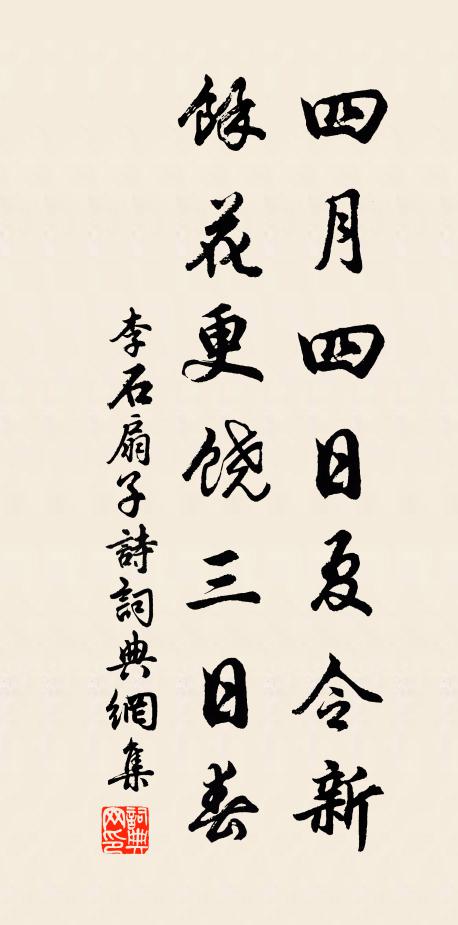 四月四日夏令新
餘花更饶三日春
李石扇子詩詞典網集
詞典网印